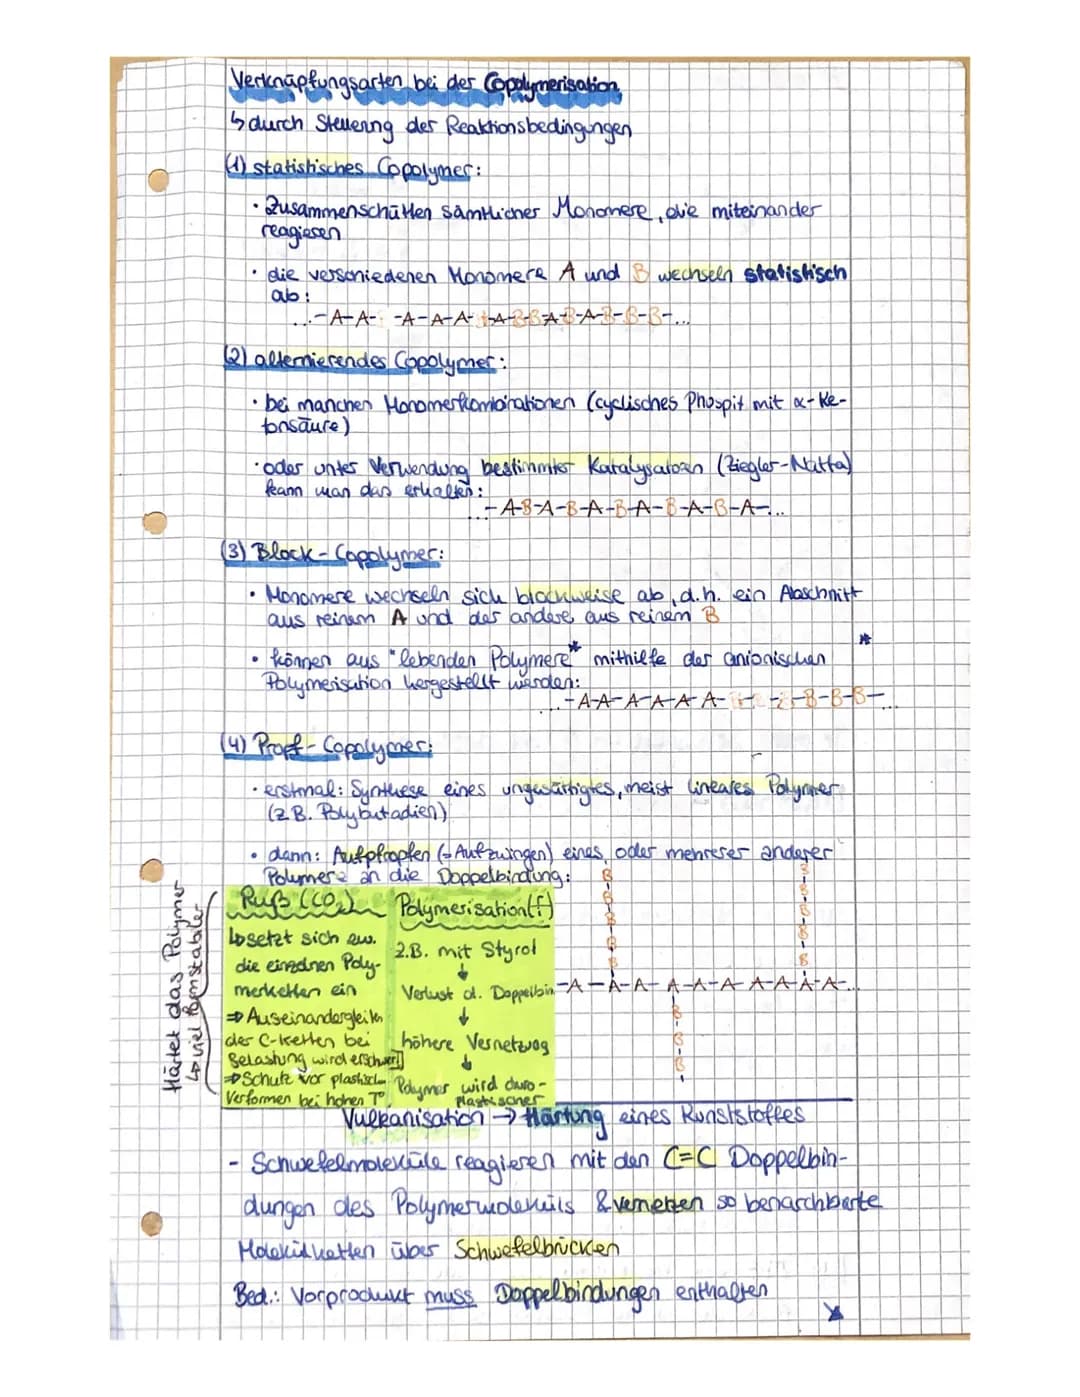 Verknüpfungsarten bei der Copolymerisation
↳ durch Steuerung der Reaktionsbedingungen
(1) statistisches Copolymer:
· Zusammenschütten sämtlicher Monomere, die miteinander
reagieren
· die verschiedenen Monomere A und B wechseln statistisch
ab:
...-A-A- -A-A-A- -A-B-B-A-B-A-B-B-B-...
(2) alternierendes Copolymer:
· bei manchen Monomerkombinationen (cyclisches Phospit mit α-Ke-
tonsäure)
· oder unter Verwendung bestimmter Katalysatoren (Ziegler-Natta)
kann man das erhalten:
...-A-B-A-B-A-B-A-B-A-B-A-...
(3) Block-Copolymer:
· Monomere wechseln sich blockweise ab, d.h. ein Abschnitt
aus reinem A und der andere aus reinem B
· können aus "lebenden Polymere* mithilfe der anionischen *
Polymerisation hergestellt werden:
...-A-A-A-A-A-A- -B-B-B-...
(4) Propf-Copolymer:
· erstmal: Synthese eines ungesättigtes, meist lineares Polymer
(z.B. Polybutadien)
· dann: Aufpfropfen (=Aufzwingen) eines oder mehrerer anderer
Polymere an die Doppelbindung:
B B
B B
B B
B B
B B
-A-A-A-A-A-A-A-A-A-A-...
B
B
B
Härtet das Polymer
↳ viel formstabiler
Ruß
↳ setzt sich zw.
die einzelnen Poly-
merketten ein
⇒ Auseinandergleiten
der C-Ketten bei
Belastung wird erschwert
⇒ Schutz vor plastischem
Verformen bei hohen T°
Polymerisation(f)
z.B. mit Styrol
↓
Verlust d. Doppelbin
↓
höhere Vernetzung
↓
Polymer wird duro-
plastischer
Vulkanisation → Härtung eines Kunststoffes
- Schwefelmoleküle reagieren mit den C=C Doppelbin-
dungen des Polymermoleküls & vernetzen so benarchbarte
Molekülketten über Schwefelbrücken
Bed.: Vorprodukt muss Doppelbindungen enthalten